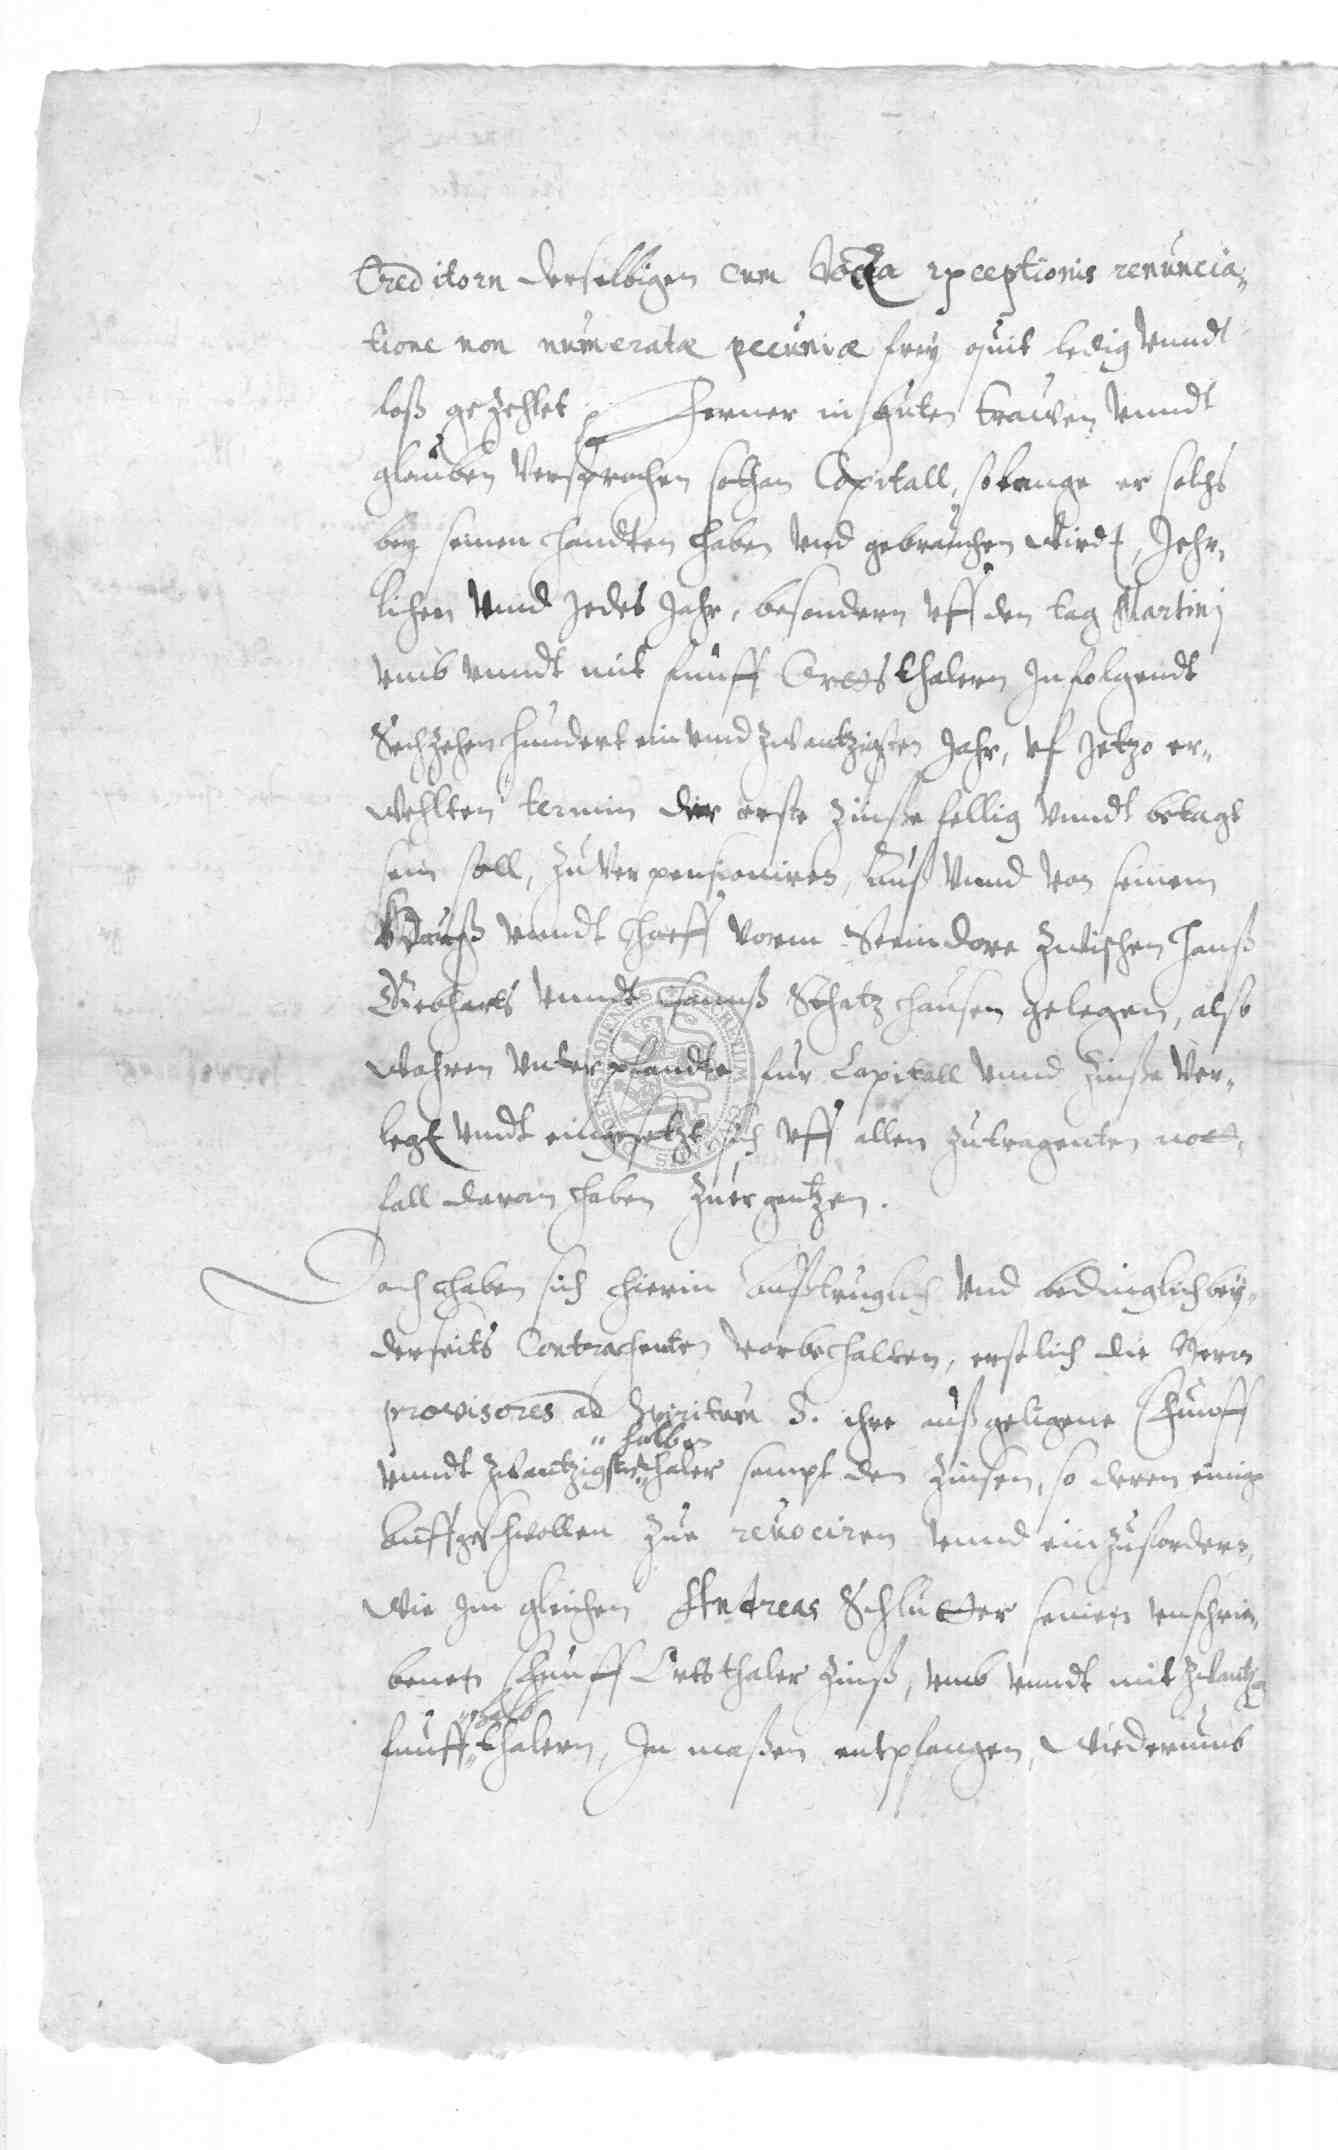 Creditorn derselbigen cum exceptionis renuncia,,
tione non numeratæ pecuniæ frey quit ledig vnndt
loß gezehlet, Ferner in guten trawen vnndt
glauben versprochen sothan Capitall, solange er solchs
bey seinen handten haben vnd gebrauchen wirdt, Jehr,,
lichen vnnd Jedes Jahr, besondern vff den tag Martinj
vmb vnndt mit funff Ortts thalern Infolgendt
Sechzehen hundert ein vnnd zwantzigsten Jahr, vf Jetzo er,,
wehlten termin der erste Zinße fellig vnndt betagt
sein soll, zu verpensioniren, auß vnnd von seinem
Hauß vnndt hoeff vorm Steindore zwischen Hanß
Gebharts vnndt Hannß Schatz hausern gelegen, alß
wahren vnterpfandte fur Capitall vnnd Zinße ver,,
legt vnndt eingesetzt sich vff allen zutragenten nott,,
fall daran haben zuergentzen.
Doch haben sich hierin außtruglich vnd bedinglich bey,,
derseits Contrahenten vorbehalten, erstlich die Herrn
provisores ad Spiritum S. ihre außgeligene Funff
vnndt zwantzigste halben thaler sampt den Zinsen, so deren einige
auffgeschwollen zue revociren vnnd einzufordern,
wie Im gleichen Andreas Schlutter seinen verschrie,,
benen Funff Ortts thaler Zinß, vmb vnndt mit zwantzig
funff halb thalern, In maßen entpfangen, wiederumb